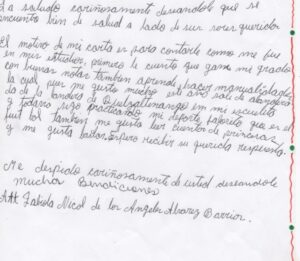 La saludo cariñosamente deseandole que se
encuentre bien de salud a lado de sus seres queridos
El motivo de mi carta es para contarle como me fue
en mis estudios, primero le cuento que gane mi grado
con buenas notas tambien aprende hacer manualidades
la cual me gusta mucho este año sali de abanderada
de la bandera de Quetzaltenango en mi escuelita
y todavia sigo practicando mi deporte favorito que es el
fust bol tambien me gusta leer cuentos de princesas
y me gusta bailar espero recibir su querida respuesta.
Me despido cariñosamente de usted deseandole
muchas Bendiciones
Att Fabiola Nicol de los Angeles Alvarez Barrios.